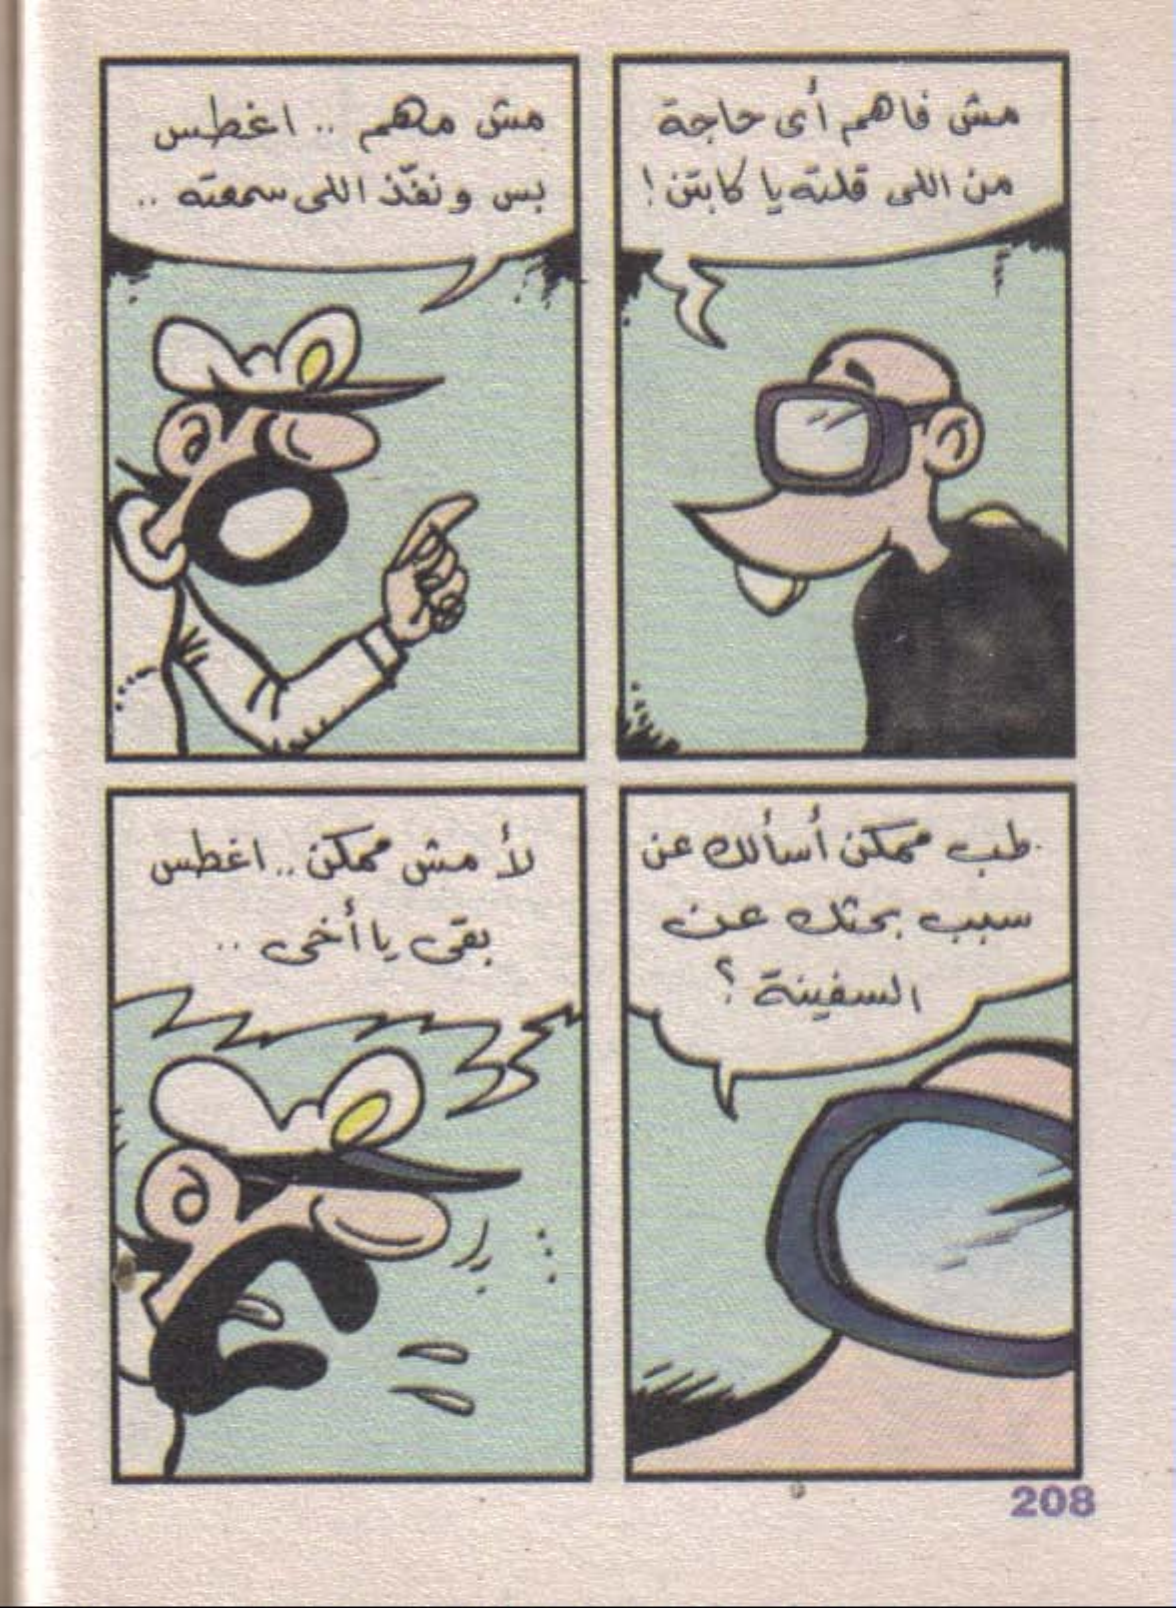 مش فاهم أى حاجة
من اللى قلته يا كابتن !
مش مهم .. اغطس
بس و نفّذ اللى سمعته ..
طب ممكن أسألك عن
سبب بحثك عن
السفينة ؟
لأ مش ممكن .. اغطس
بقى يا أخى ..
208